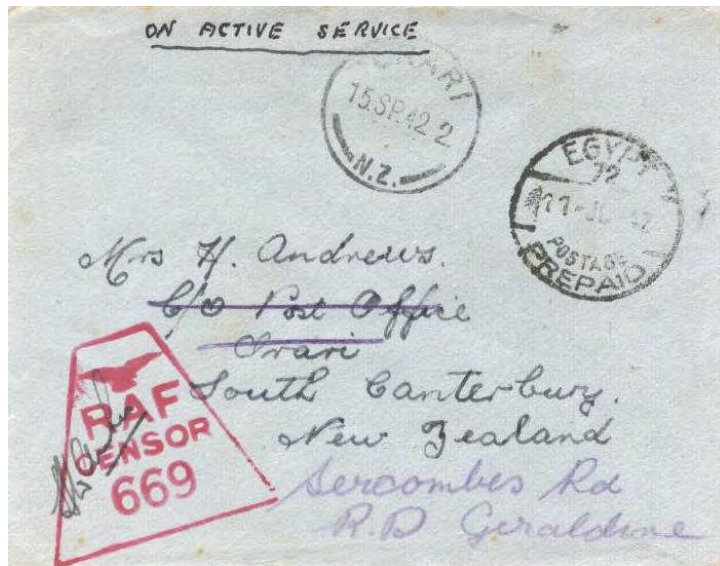 ON ACTIVE SERVICE
15.SP.42.2
N.Z.
EGYPT
72
POSTAGE
PREPAID
Mrs H. Andrews.
C/o Post Office
Orari
South Canterbury.
New Zealand
Sercombes Rd
R.D Geraldine
RAF
CENSOR
669